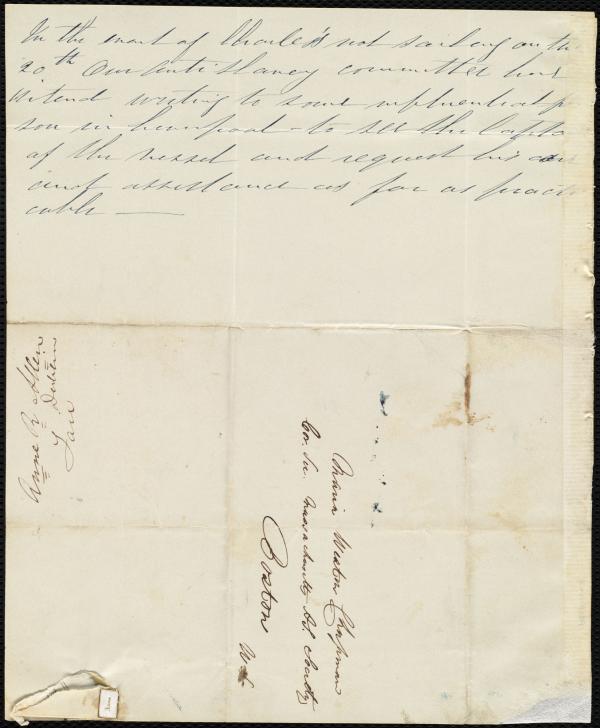 In the event of Charles's not sailing on the
20th Our Anti Slavery committee here
intend writing to some influential per
son in Liverpool to see the Capta
of the vessel and request his
and assistance as far as practi
cable —
Anne R Allen
Dublin
Fair
Maria Weston Chapman
Cor. Sec. Massachusetts A.S. Society
Boston